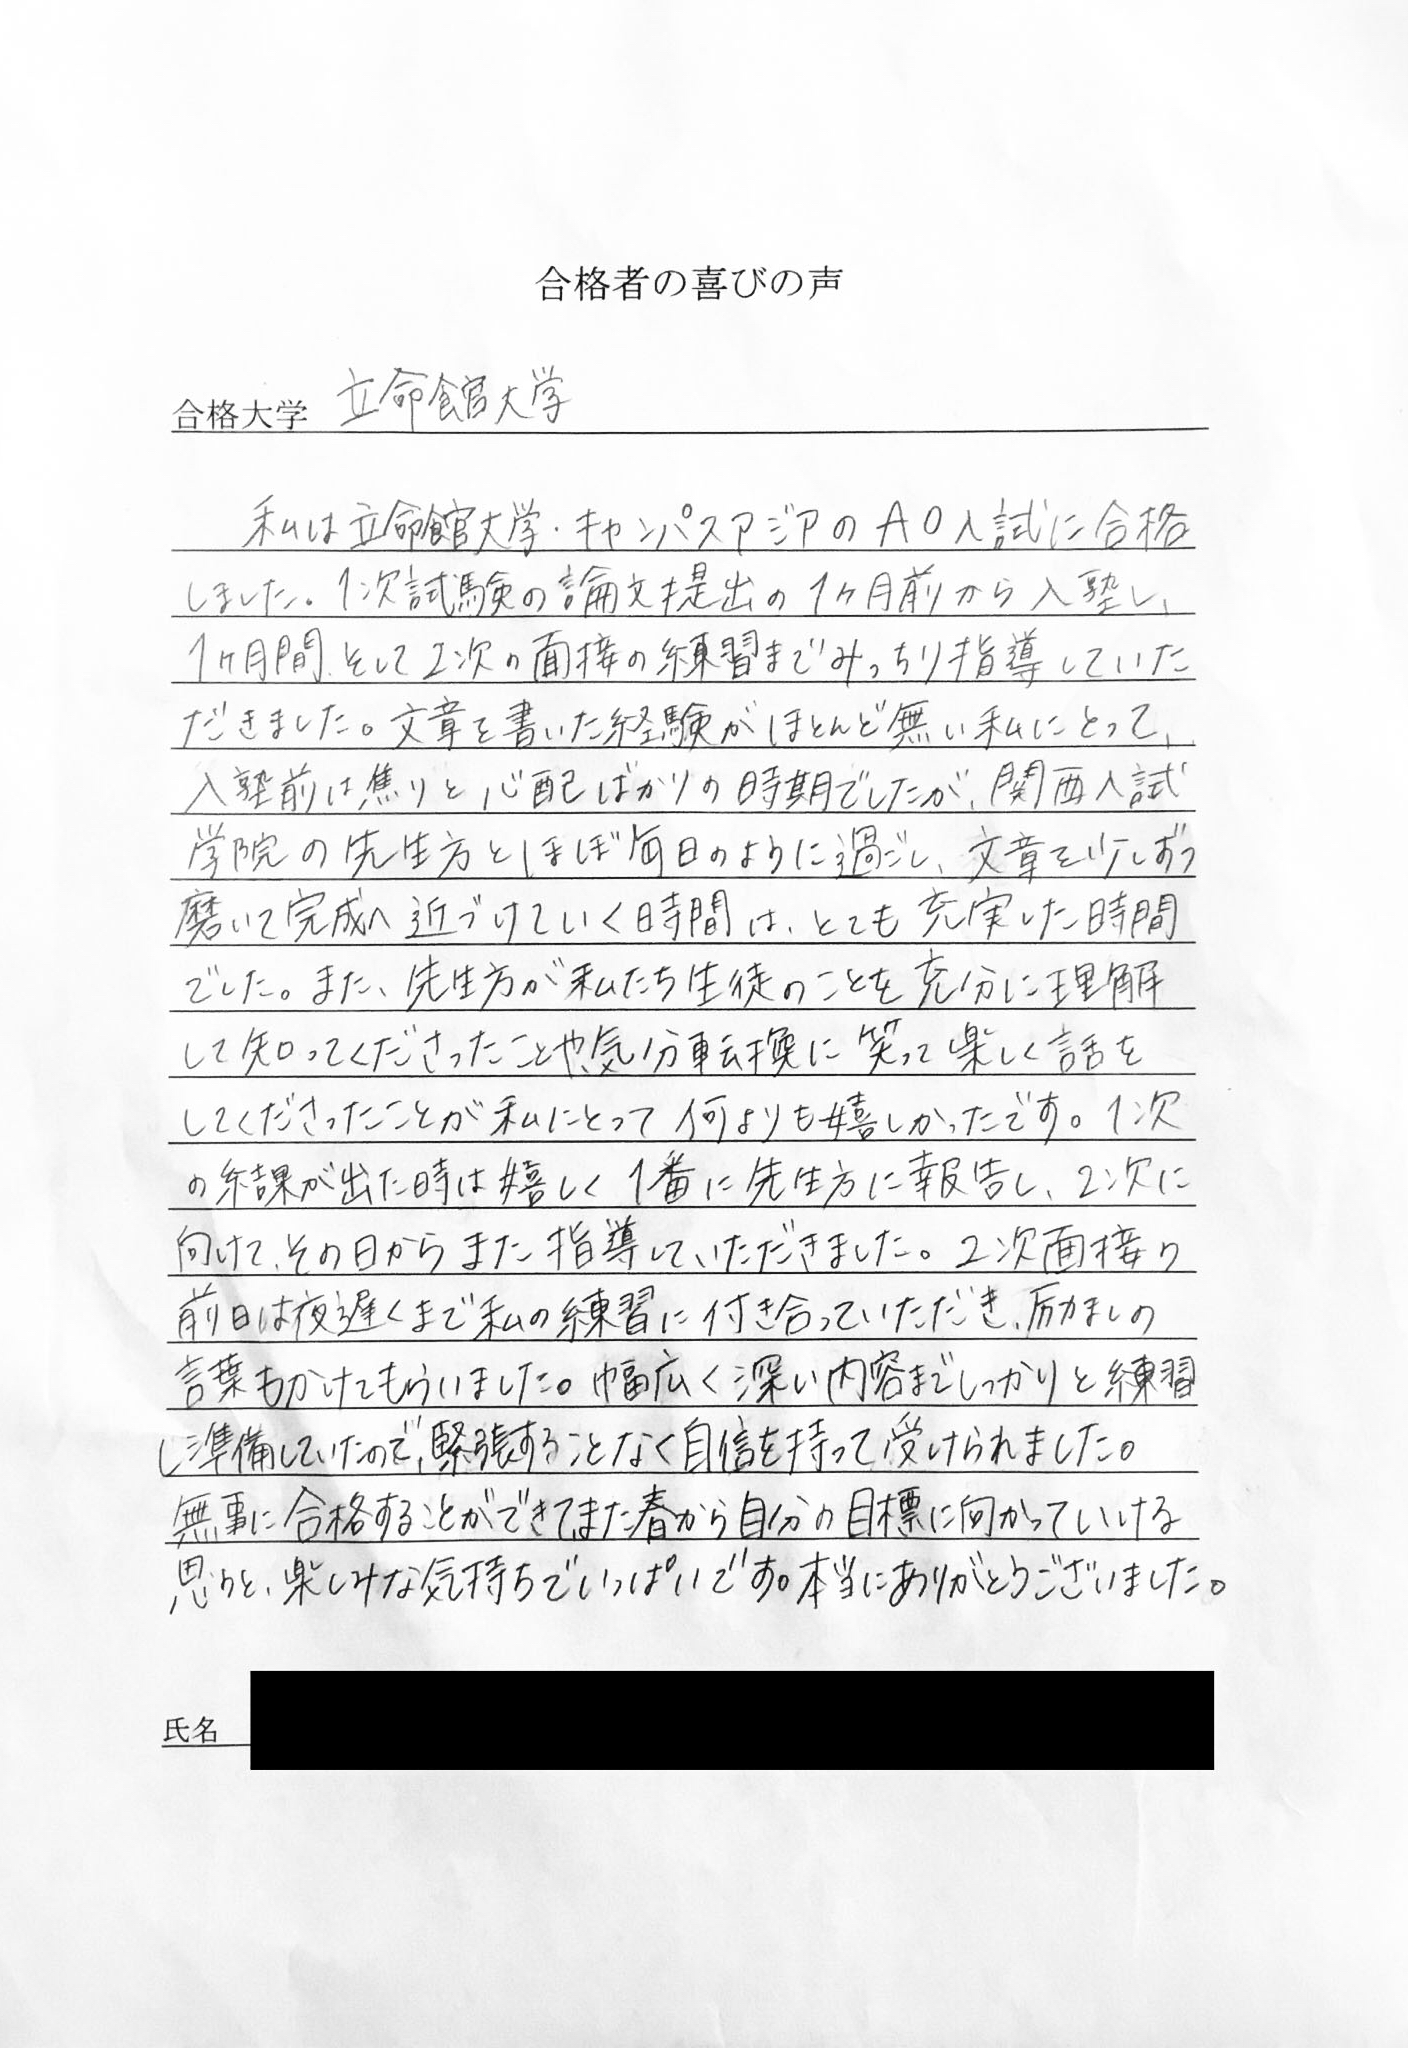 合格者の喜びの声
合格大学 立命館大学
私は立命館大学・キャンパスアジアのAO入試に合格
しました。1次試験の論文提出の1ヶ月前から入塾し、
1ヶ月間、そして2次の面接の練習までみっちり指導していた
だきました。文章を書いた経験がほとんど無い私にとって、
入塾前は焦りと心配ばかりの時期でしたが、関西入試
学院の先生方とほぼ毎日のように過ごし、文章を少しずつ
磨いて完成へ近づけていく時間は、とても充実した時間
でした。また、先生方が私たち生徒のことを充分に理解
して知ってくださったことや、気分転換に笑って楽しく話を
してくださったことが私にとって何よりも嬉しかったです。1次
の結果が出た時は嬉しく1番に先生方に報告し、2次に
向けて、その日からまた指導していただきました。2次面接の
前日は夜遅くまで私の練習に付き合っていただき、励ましの
言葉もかけてもらいました。幅広く深い内容までしっかりと練習
し準備していたので、緊張することなく自信を持って受けられました。
無事に合格することができてまた春から自分の目標に向かっていける
思うと、楽しみな気持ちでいっぱいです。本当にありがとうございました。
氏名